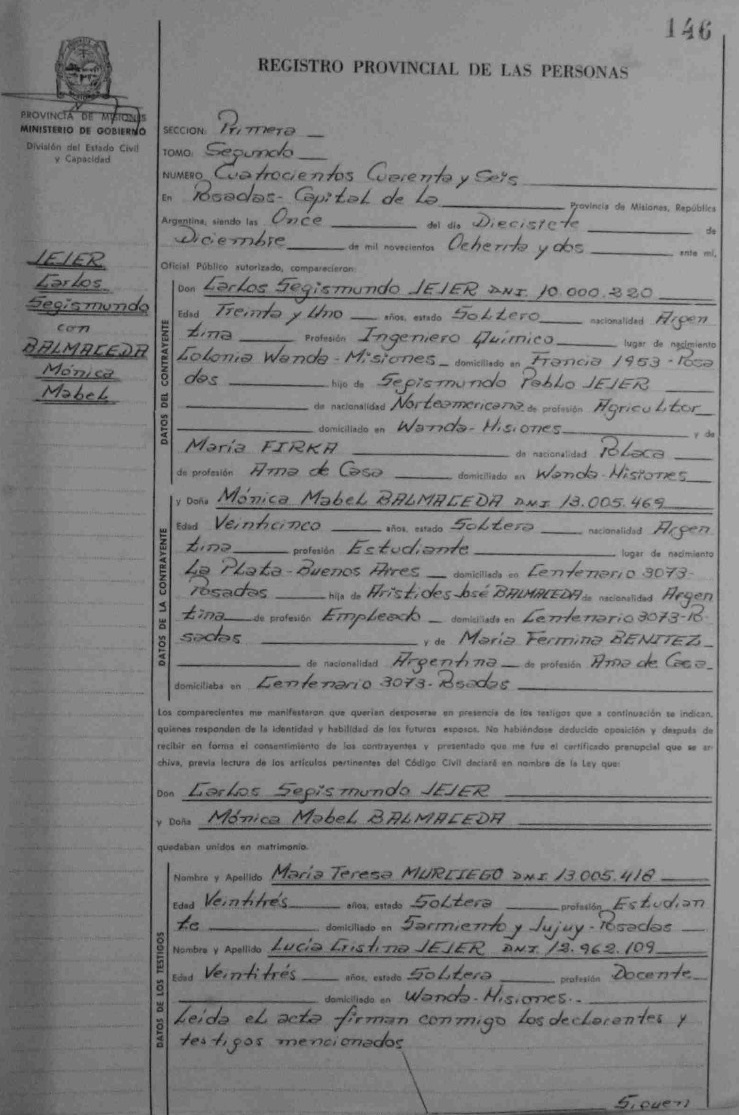 146
REGISTRO PROVINCIAL DE LAS PERSONAS
PROVINCIA DE MISIONES
MINISTERIO DE GOBIERNO
División del Estado Civil
y Capacidad
JEJER
Carlos
Segismundo
con
BALMACEDA
Mónica
Mabel
SECCION: Primera
TOMO: Segundo
NUMERO Cuatrocientos Cuarenta y Seis
En Posadas - Capital de La Provincia de Misiones, República
Argentina, siendo las Once del día Diecisiete de
Diciembre de mil novecientos Ochenta y dos ante mí,
Oficial Público autorizado, comparecieron:
DATOS DEL CONTRAYENTE
Don Carlos Segismundo JEJER DNI. 10.000.220
Edad Treinta y Uno años, estado Soltero nacionalidad Argen
tina Profesión Ingeniero Químico lugar de nacimiento
Colonia Wanda - Misiones domiciliado en Francia 1953 - Posa
das hijo de Segismundo Pablo JEJER
de nacionalidad Norteamericana de profesión Agricultor
domiciliado en Wanda - Misiones y de
María FIRKA de nacionalidad Polaca
de profesión Ama de Casa domiciliado en Wanda - Misiones
DATOS DE LA CONTRAYENTE
y Doña Mónica Mabel BALMACEDA DNI. 13.005.469
Edad Veinticinco años, estado Soltera nacionalidad Argen
tina profesión Estudiante lugar de nacimiento
La Plata - Buenos Aires domiciliada en Centenario 3073 -
Posadas hija de Arístides José BALMACEDA de nacionalidad Argen
tina de profesión Empleado domiciliada en Centenario 3073 - Po
sadas y de María Fermina BENITEZ
de nacionalidad Argentina de profesión Ama de Casa
domiciliaba en Centenario 3073 - Posadas
Los comparecientes me manifestaron que querían desposarse en presencia de los testigos que a continuación se indican,
quienes responden de la identidad y habilidad de los futuros esposos. No habiéndose deducido oposición y después de
recibir en forma el consentimiento de los contrayentes y presentado que me fue el certificado prenupcial que se ar
chiva, previa lectura de los artículos pertinentes del Código Civil declaré en nombre de la Ley que:
Don Carlos Segismundo JEJER
y Doña Mónica Mabel BALMACEDA
quedaban unidos en matrimonio.
DATOS DE LOS TESTIGOS
Nombre y Apellido María Teresa MURCIEGO DNI. 13.005.418
Edad Veintitrés años, estado Soltera profesión Estudian
te domiciliado en Sarmiento y Jujuy - Posadas
Nombre y Apellido Lucía Cristina JEJER DNI. 12.962.109
Edad Veintitrés años, estado Soltera profesión Docente
domiciliado en Wanda - Misiones.-
Leída el acta firman conmigo los declarantes y
testigos mencionados
Siguen